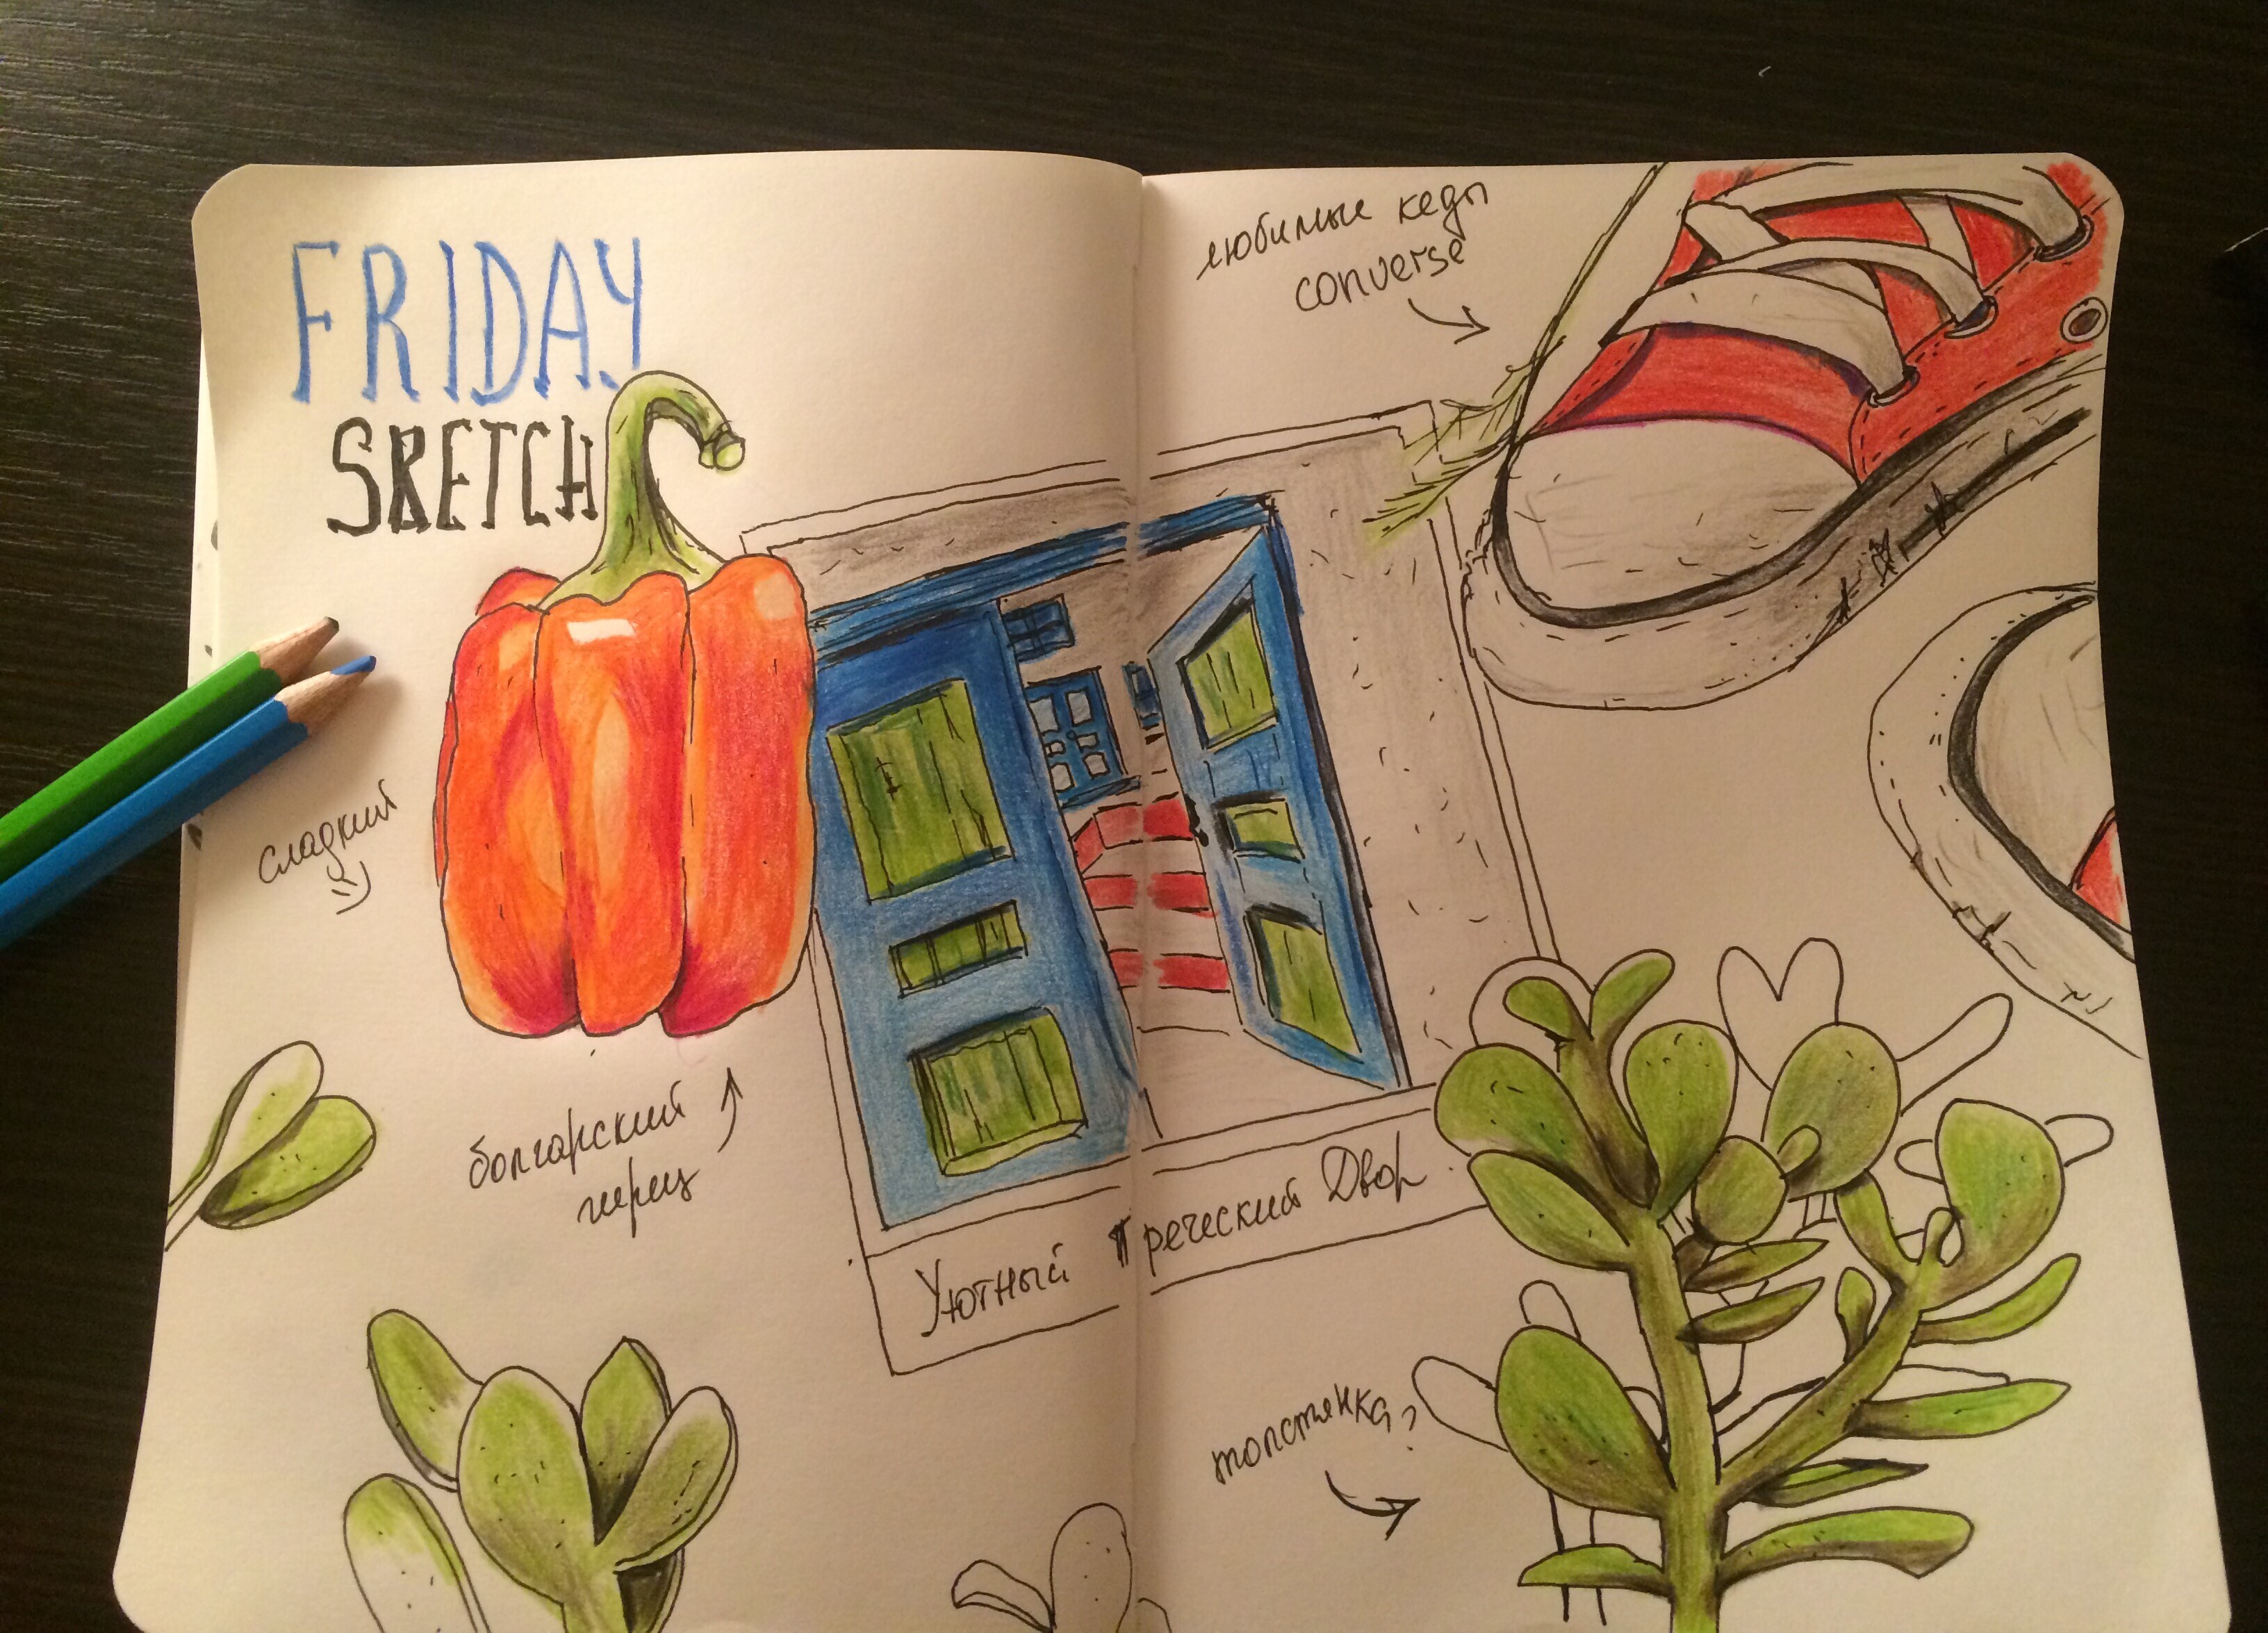 FRIDAY
SKETCH
сладкий
болгарский
перец
любимые кеды
converse
Уютный Греческий Двор
толстянка?